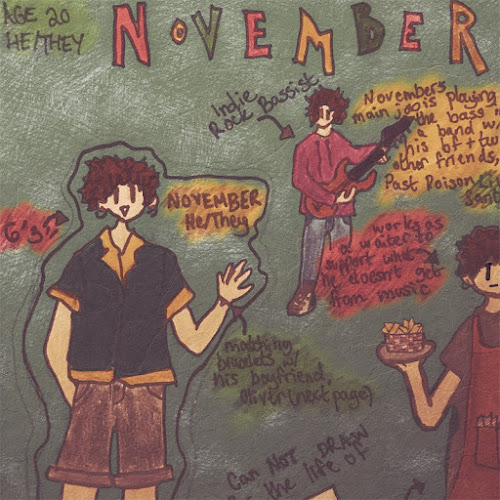 AGE 20
HE/THEY
NOVEMBER
Indie
Rock Bassist
Novembers
main job is playing
the bass
in a band w/
his bf + two
other friends,
Past Poison
6'3"
NOVEMBER
He/They
works as
a waiter to
support what
he doesn't get
from music
matching
bracelets w/
his boyfriend,
Oliver (next page)
Can NOT DRAW
the life of